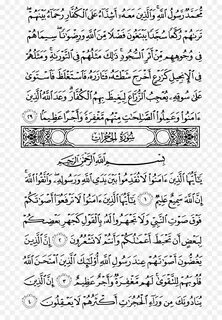 مُّحَمَّدٌ رَّسُولُ ٱللَّهِ وَٱلَّذِينَ مَعَهُۥٓ أَشِدَّآءُ عَلَى ٱلْكُفَّارِ رُحَمَآءُ بَيْنَهُمْ
تَرَىٰهُمْ رُكَّعًا سُجَّدًا يَبْتَغُونَ فَضْلًا مِّنَ ٱللَّهِ وَرِضْوَٰنًا سِيمَاهُمْ
فِى وُجُوهِهِم مِّنْ أَثَرِ ٱلسُّجُودِ ذَٰلِكَ مَثَلُهُمْ فِى ٱلتَّوْرَىٰةِ وَمَثَلُهُمْ
فِى ٱلْإِنجِيلِ كَزَرْعٍ أَخْرَجَ شَطْـَٔهُۥ فَـَٔازَرَهُۥ فَٱسْتَغْلَظَ فَٱسْتَوَىٰ
عَلَىٰ سُوقِهِۦ يُعْجِبُ ٱلزُّرَّاعَ لِيَغِيظَ بِهِمُ ٱلْكُفَّارَ وَعَدَ ٱللَّهُ ٱلَّذِينَ
ءَامَنُوا۟ وَعَمِلُوا۟ ٱلصَّٰلِحَٰتِ مِنْهُم مَّغْفِرَةً وَأَجْرًا عَظِيمًۢا ٢٩
سُورَةُ الحُجُرَاتِ
بِسْمِ ٱللَّهِ ٱلرَّحْمَٰنِ ٱلرَّحِيمِ
يَٰٓأَيُّهَا ٱلَّذِينَ ءَامَنُوا۟ لَا تُقَدِّمُوا۟ بَيْنَ يَدَىِ ٱللَّهِ وَرَسُولِهِۦ وَٱتَّقُوا۟ ٱللَّهَ
إِنَّ ٱللَّهَ سَمِيعٌ عَلِيمٌ ١ يَٰٓأَيُّهَا ٱلَّذِينَ ءَامَنُوا۟ لَا تَرْفَعُوٓا۟ أَصْوَٰتَكُمْ
فَوْقَ صَوْتِ ٱلنَّبِىِّ وَلَا تَجْهَرُوا۟ لَهُۥ بِٱلْقَوْلِ كَجَهْرِ بَعْضِكُمْ
لِبَعْضٍ أَن تَحْبَطَ أَعْمَٰلُكُمْ وَأَنتُمْ لَا تَشْعُرُونَ ٢ إِنَّ ٱلَّذِينَ
يَغُضُّونَ أَصْوَٰتَهُمْ عِندَ رَسُولِ ٱللَّهِ أُو۟لَٰٓئِكَ ٱلَّذِينَ ٱمْتَحَنَ ٱللَّهُ
قُلُوبَهُمْ لِلتَّقْوَىٰ لَهُم مَّغْفِرَةٌ وَأَجْرٌ عَظِيمٌ ٣ إِنَّ ٱلَّذِينَ
يُنَادُونَكَ مِن وَرَآءِ ٱلْحُجُرَٰتِ أَكْثَرُهُمْ لَا يَعْقِلُونَ ٤